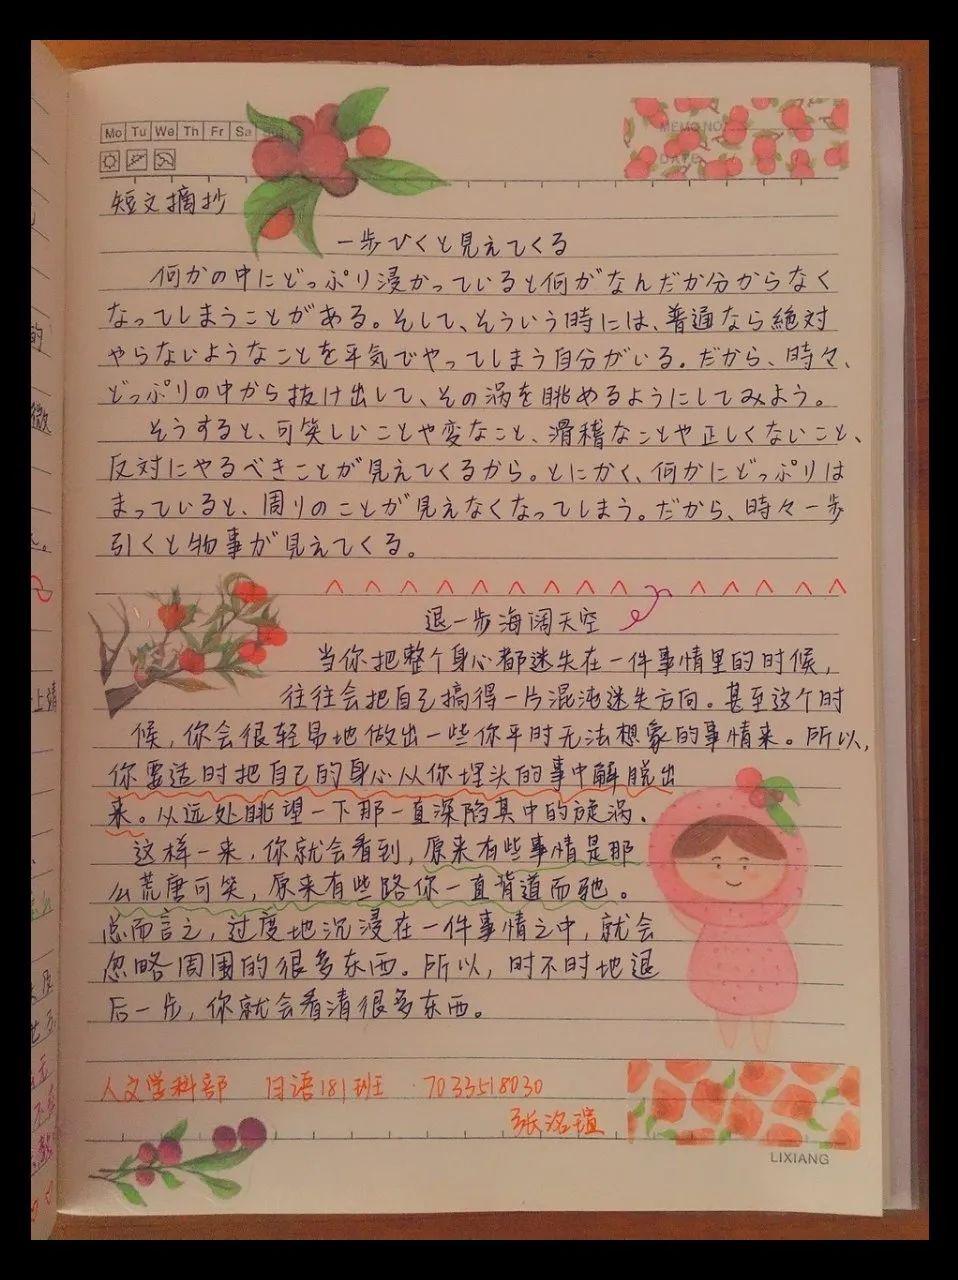 Mo Tu We Th Fr Sa
MEMO NO.
DATE
短文摘抄
一歩ひくと見えてくる
何かの中にどっぷり浸かっていると何がなんだか分からなく
なってしまうことがある。そして、そういう時には、普通なら絶対
やらないようなことを平気でやってしまう自分がいる。だから、時々、
どっぷりの中から抜け出して、その渦を眺めるようにしてみよう。
そうすると、可笑しいことや変なこと、滑稽なことや正しくないこと、
反対にやるべきことが見えてくるから。とにかく、何かにどっぷりは
まっていると、周りのことが見えなくなってしまう。だから、時々一歩
引くと物事が見えてくる。
退一步海阔天空
当你把整个身心都迷失在一件事情里的时候，
往往会把自己搞得一片混沌迷失方向。甚至这个时
候，你会很轻易地做出一些你平时无法想象的事情来。所以，
你要适时把自己的身心从你埋头的事中解脱出
来。从远处眺望一下那一直深陷其中的旋涡。
这样一来，你就会看到，原来有些事情是那
么荒唐可笑，原来有些路你一直背道而驰。
总而言之，过度地沉浸在一件事情之中，就会
忽略周围的很多东西。所以，时不时地退
后一步，你就会看清很多东西。
人文学科部 日语181班 7033518030
张洺瑄
LIXIANG